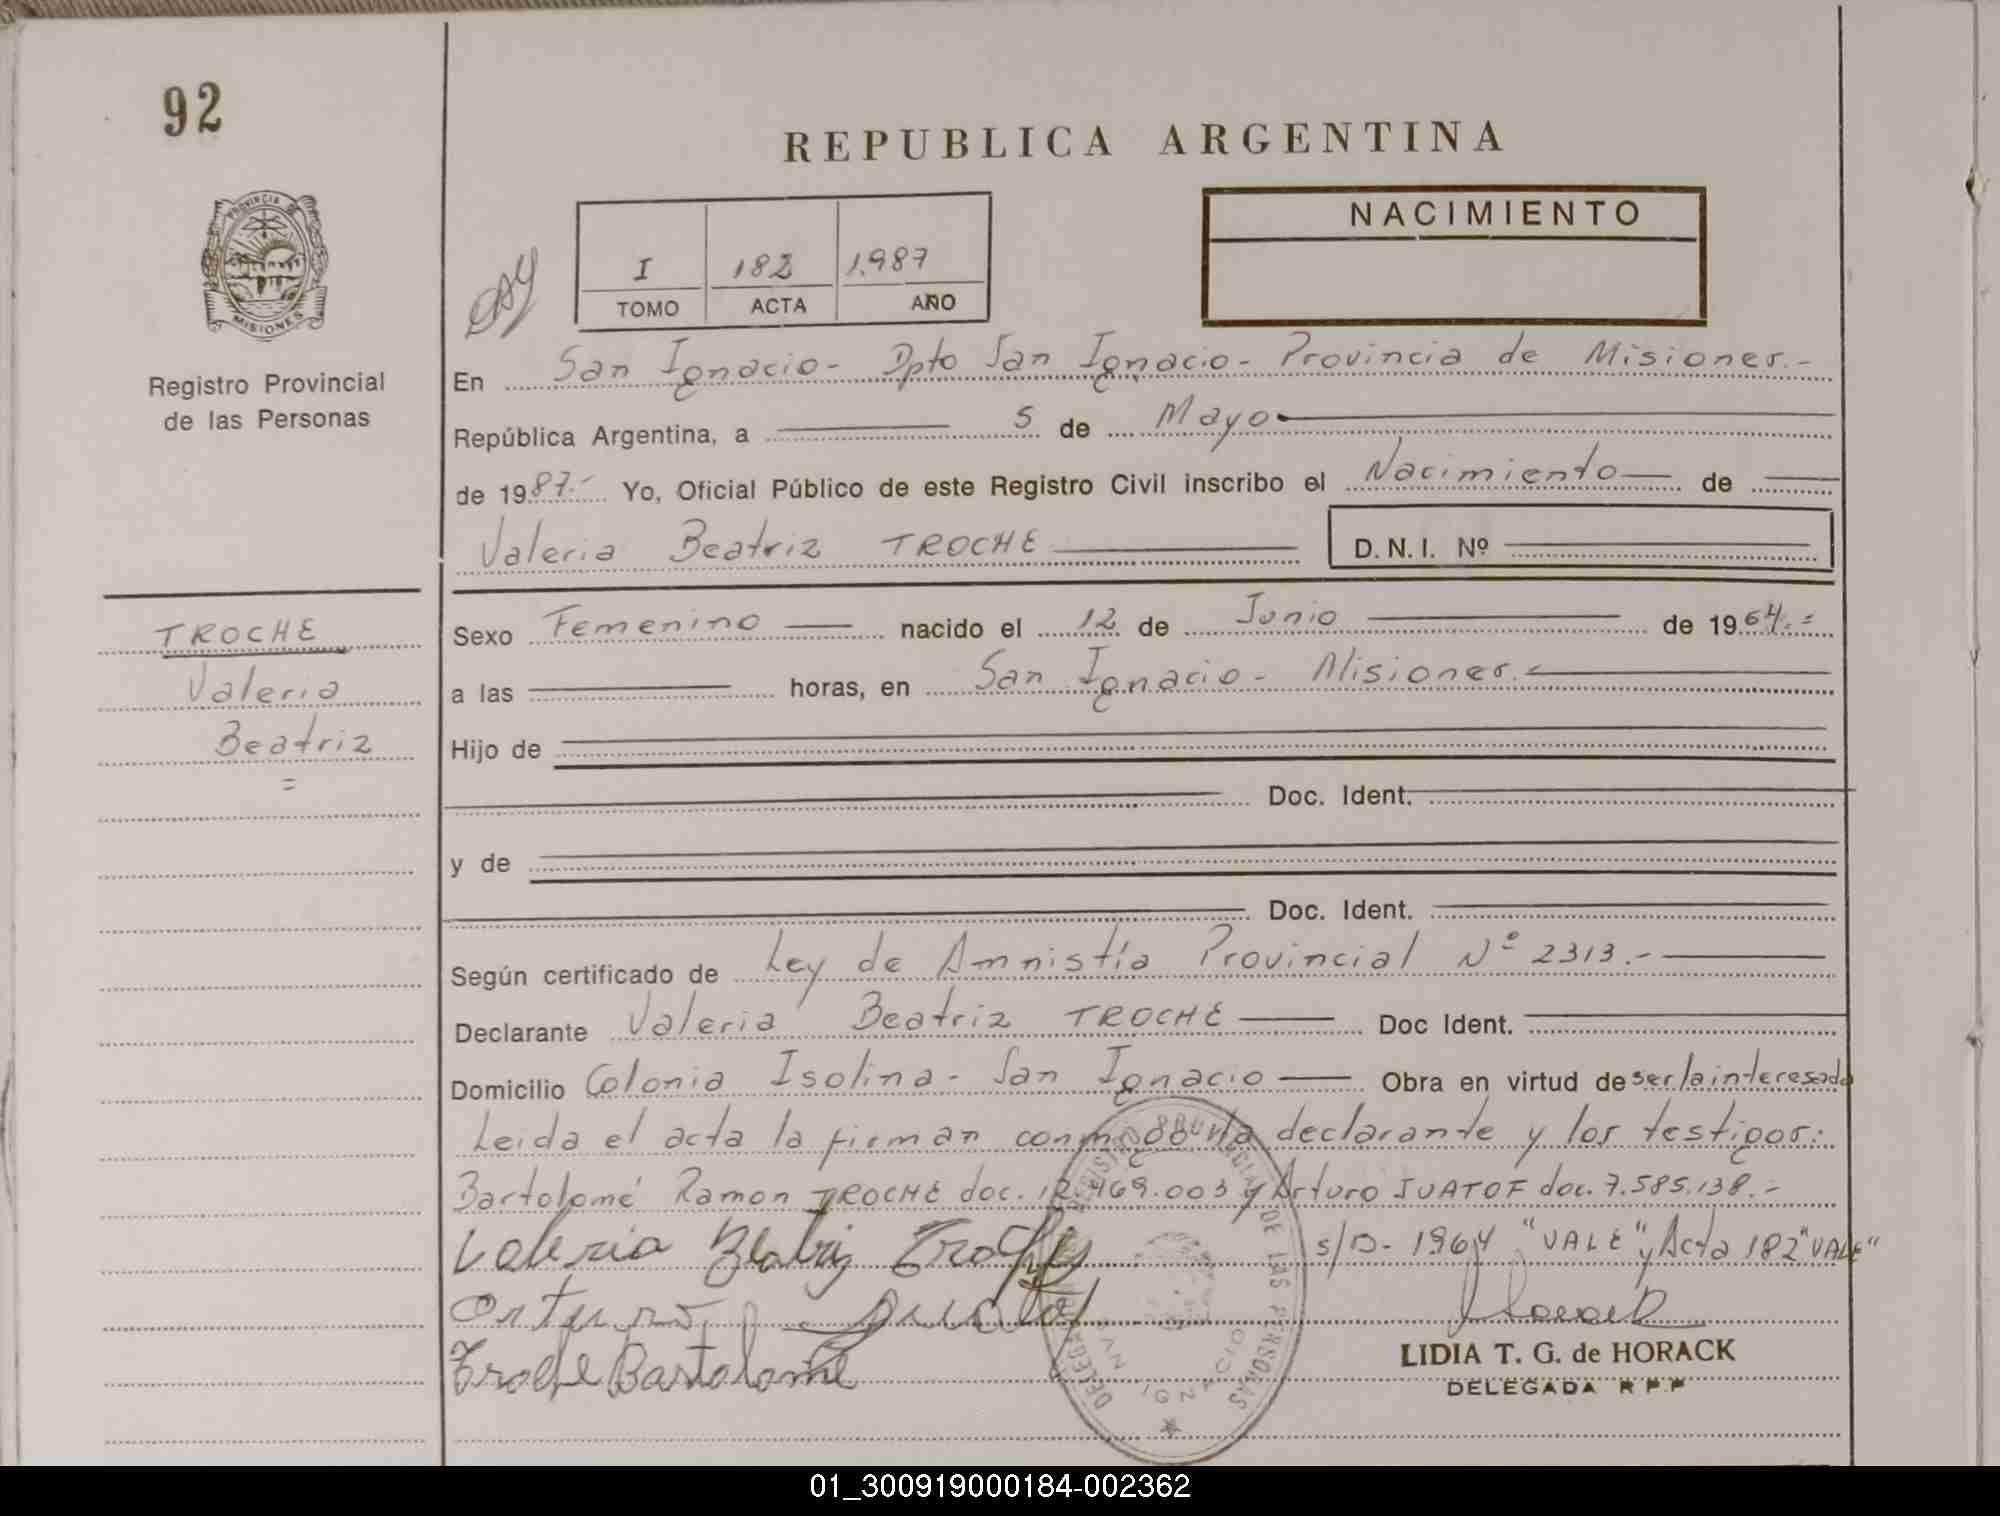 92
REPUBLICA ARGENTINA
PROVINCIA DE
MISIONES
Registro Provincial
de las Personas
I 182 1.987
TOMO ACTA AÑO
NACIMIENTO
En San Ignacio- Dpto San Ignacio- Provincia de Misiones.-
República Argentina, a 5 de Mayo
de 1987.- Yo, Oficial Público de este Registro Civil inscribo el Nacimiento de
Valeria Beatriz TROCHE D.N.I. Nº
TROCHE
Valeria
Beatriz
=
Sexo Femenino nacido el 12 de Junio de 1964.=
a las horas, en San Ignacio- Misiones.-
Hijo de
Doc. Ident.
y de
Doc. Ident.
Según certificado de Ley de Amnistía Provincial Nº 2313.-
Declarante Valeria Beatriz TROCHE Doc Ident.
Domicilio Colonia Isolina- San Ignacio Obra en virtud de ser la interesada
Leida el acta la firman conmigo la declarante y los testigos:
Bartolomé Ramon TROCHE doc. 12.469.003 y Arturo JUATOF doc. 7.585.138.-
Valeria Beatriz Troche s/B- 1964 "VALE" y Acta 182 "VALE"
Arturo
Troche Bartolome
LIDIA T. G. de HORACK
DELEGADA R P P
REGISTRO PROVINCIAL DE LAS PERSONAS
DELEGACION
SAN IGNACIO
01_300919000184-002362